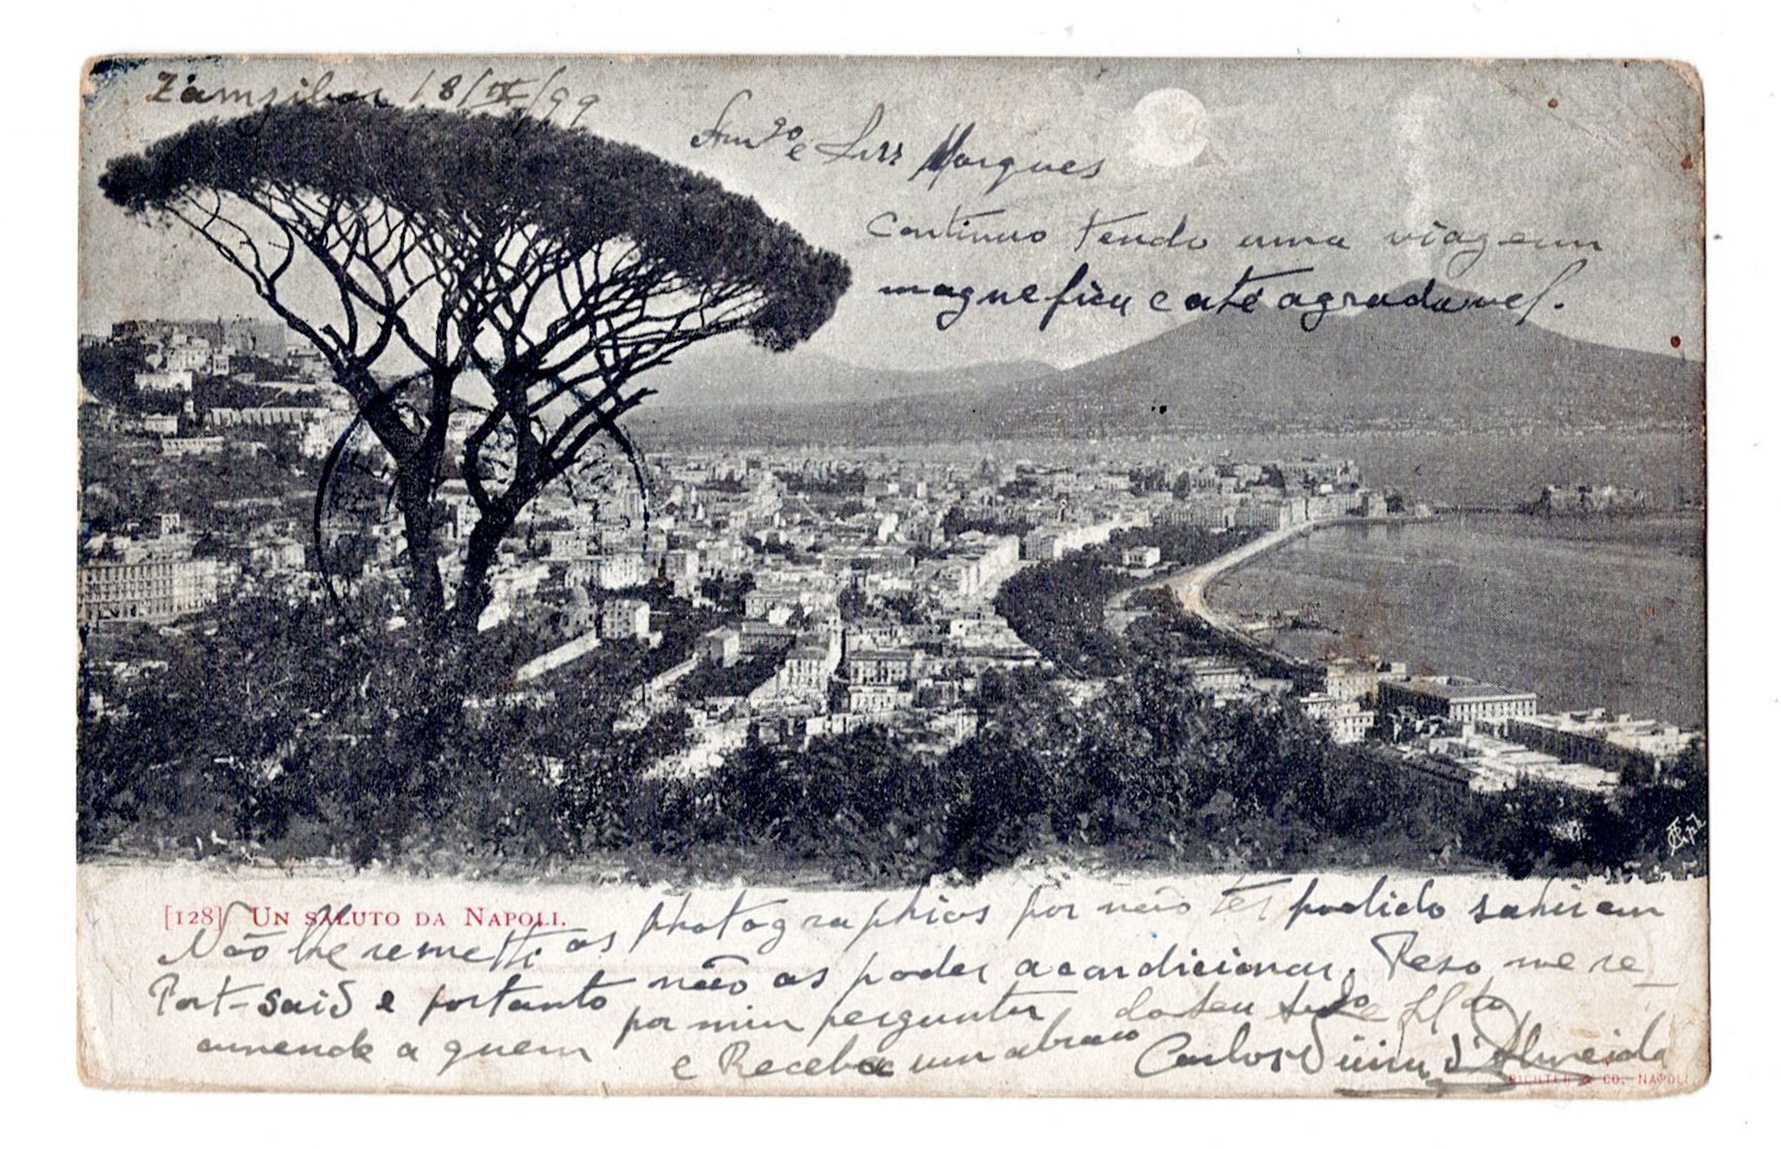 Zamzibar 18/IX/99
Am.go e Snr Marques
Continuo tendo uma viagem
magnefica e até agradavel.
[128] UN SALUTO DA NAPOLI.
Não lhe remetti as photographias por não ter podido sahir em
Port-Said e portanto não as poder acondicionar. Peso me re_
cumende a quem por mim perguntar
e Receba um abraco do seu
Carlos d'Almeida
RICHTER & CO. NAPOLI